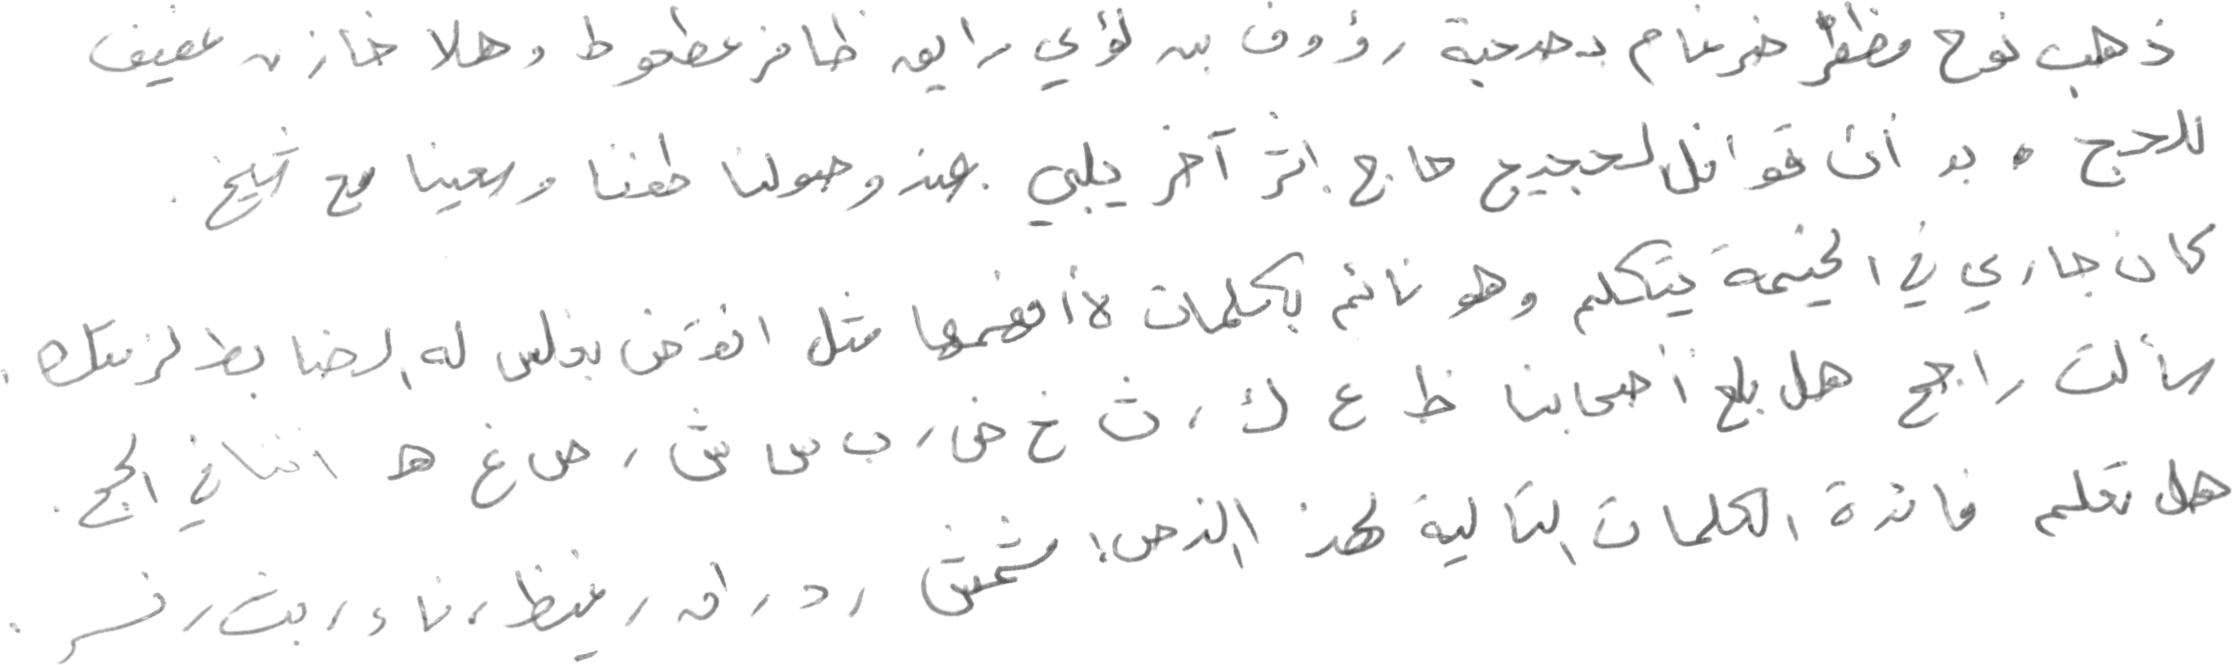 ذهب نوح مظفر ضرغام بصحبة رؤوف بن لؤي رايق ظافر عطعوط وهلا خازن عفيف
للحج، بدأت قوافل الحجيج حاج إثر آخر يلبي. عند وصولنا طفنا وسعينا مع شيخ.
كان جاري في الخيمة يتكلم وهو نائم بكلمات لا أفهمها مثل انقض بغلس له الضابط لزيتك.
سألت راجح هل بلغ أصحابنا ظ ع ك، ث خ ض، ب س ش، ص غ ه اثنا في الحج.
هل تعلم فائدة الكلمات التالية لهذا النص: مشمش، د، أف، غيظ، ناء، بث، نسر.